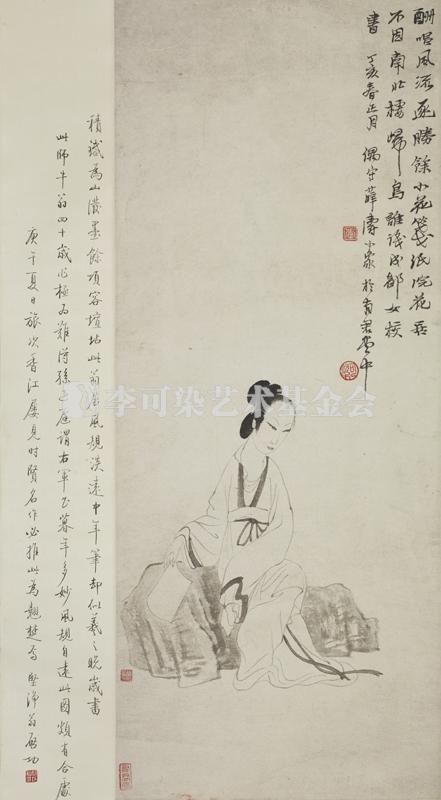 酬唱風流逐勝餘小花箋紙浣花
不因南北棲歸鳥誰識成都女校
書 丁亥春正月 偶作薛濤小象於有君堂中
積鐵為山潑墨餘項容壇坫此翁居風規淡遠中年筆卻似羲之晚歲書
此師牛翁四十歲作極為難得孫過庭謂右軍暮年多妙風規自遠此圖頗有合處
庚午夏日旅次香江屢見時賢名作必推此為翹楚焉 堅淨翁啟功
李可染艺术基金会